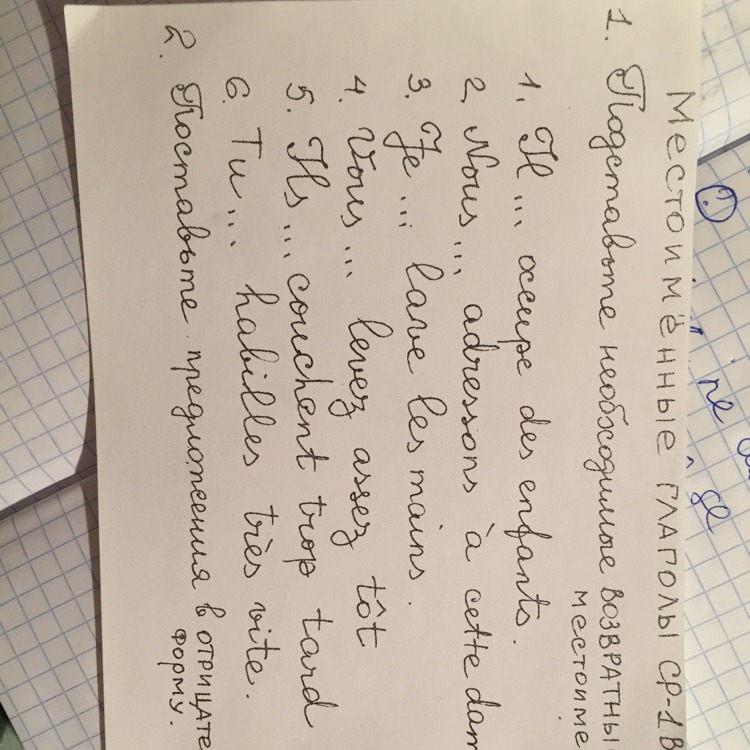 МЕСТОИМЁННЫЕ ГЛАГОЛЫ СР-1В
1. Подставьте необходимые ВОЗВРАТНЫ
МЕСТОИМЕ
1. Il ... occupe des enfants.
2. Nous ... adressons à cette dam
3. Je ... lave les mains.
4. Vous ... levez assez tôt
5. Ils ... couchent trop tard
6. Tu ... habilles très vite.
2. Поставьте предложения в ОТРИЦАТЕ
ФОРМУ.
ne